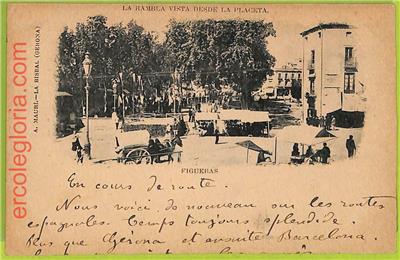 LA RAMBLA VISTA DESDE LA PLACETA.
A. MAURI.—LA BISBAL (GERONA)
ercolegloria.com
FIGUERAS
En cours de route.
Nous voici de nouveau sur les routes
espagnoles. Temps toujours splendide.
Plus que Gérona et ensuite Barcelona.